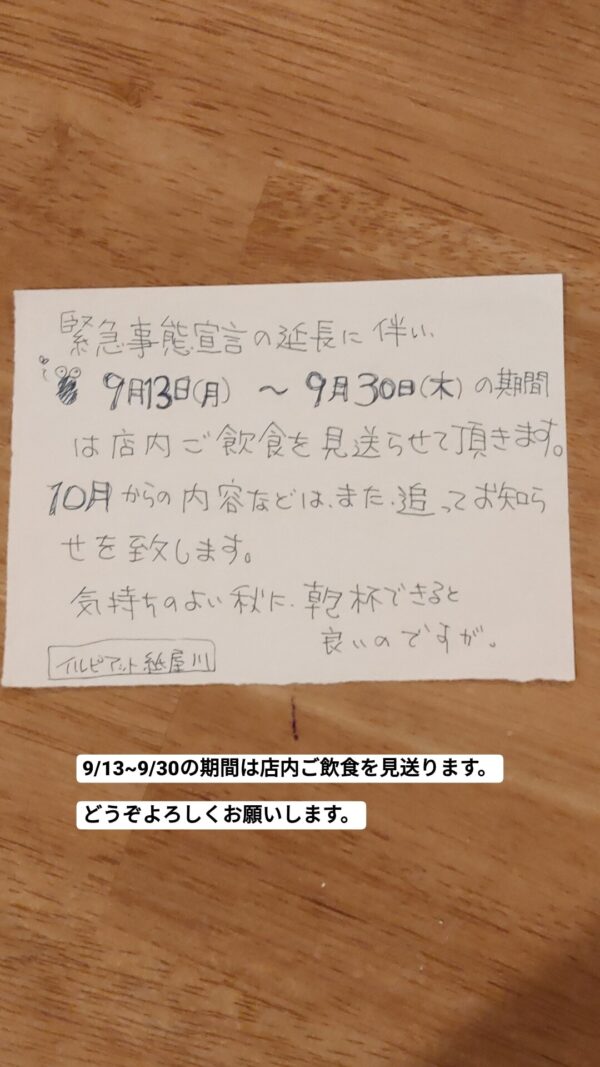 緊急事態宣言の延長に伴い、
9月13日(月) 〜 9月30日(木)の期間
は店内ご飲食を見送らせて頂きます。
10月からの内容などは、また、追ってお知ら
せを致します。
気持ちのよい秋に、乾杯できると
良いのですが。
イルピアット紙屋川
9/13~9/30の期間は店内ご飲食を見送ります。
どうぞよろしくお願いします。